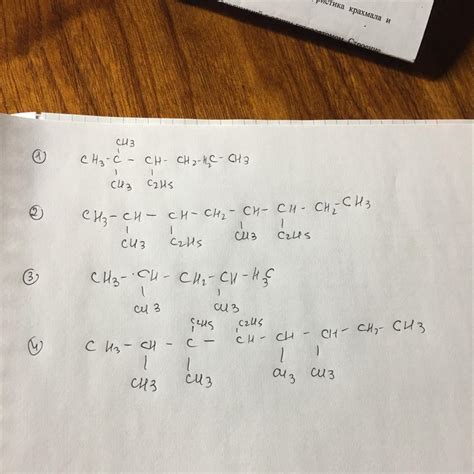 ристика крахмала и
Строение
1) CH3
CH3-C - CH- CH2-H2C-CH3
CH3 C2H5
2) CH3-CH - CH-CH2-CH-CH-CH2-CH3
CH3 C2H5 CH3 C2H5
3) CH3-CH - CH2-CH-H3C
CH3 CH3
C2H5 C2H5
4) CH3-CH - C - CH-CH-CH-CH2-CH3
CH3 CH3 CH3 CH3